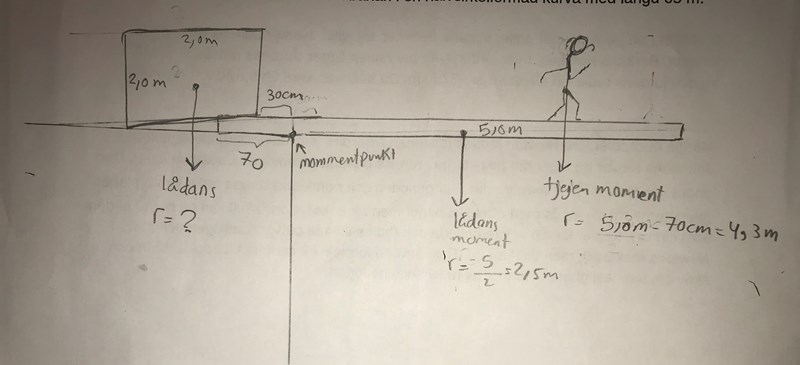 med längd 65 m.
2,0m
2,0m
30cm
5,0m
70
mommentpunkt
lådans
r= ?
lådans
moment
r= 5/2 = 2,5m
tjejen moment
r= 5,0m - 70cm = 4,3m